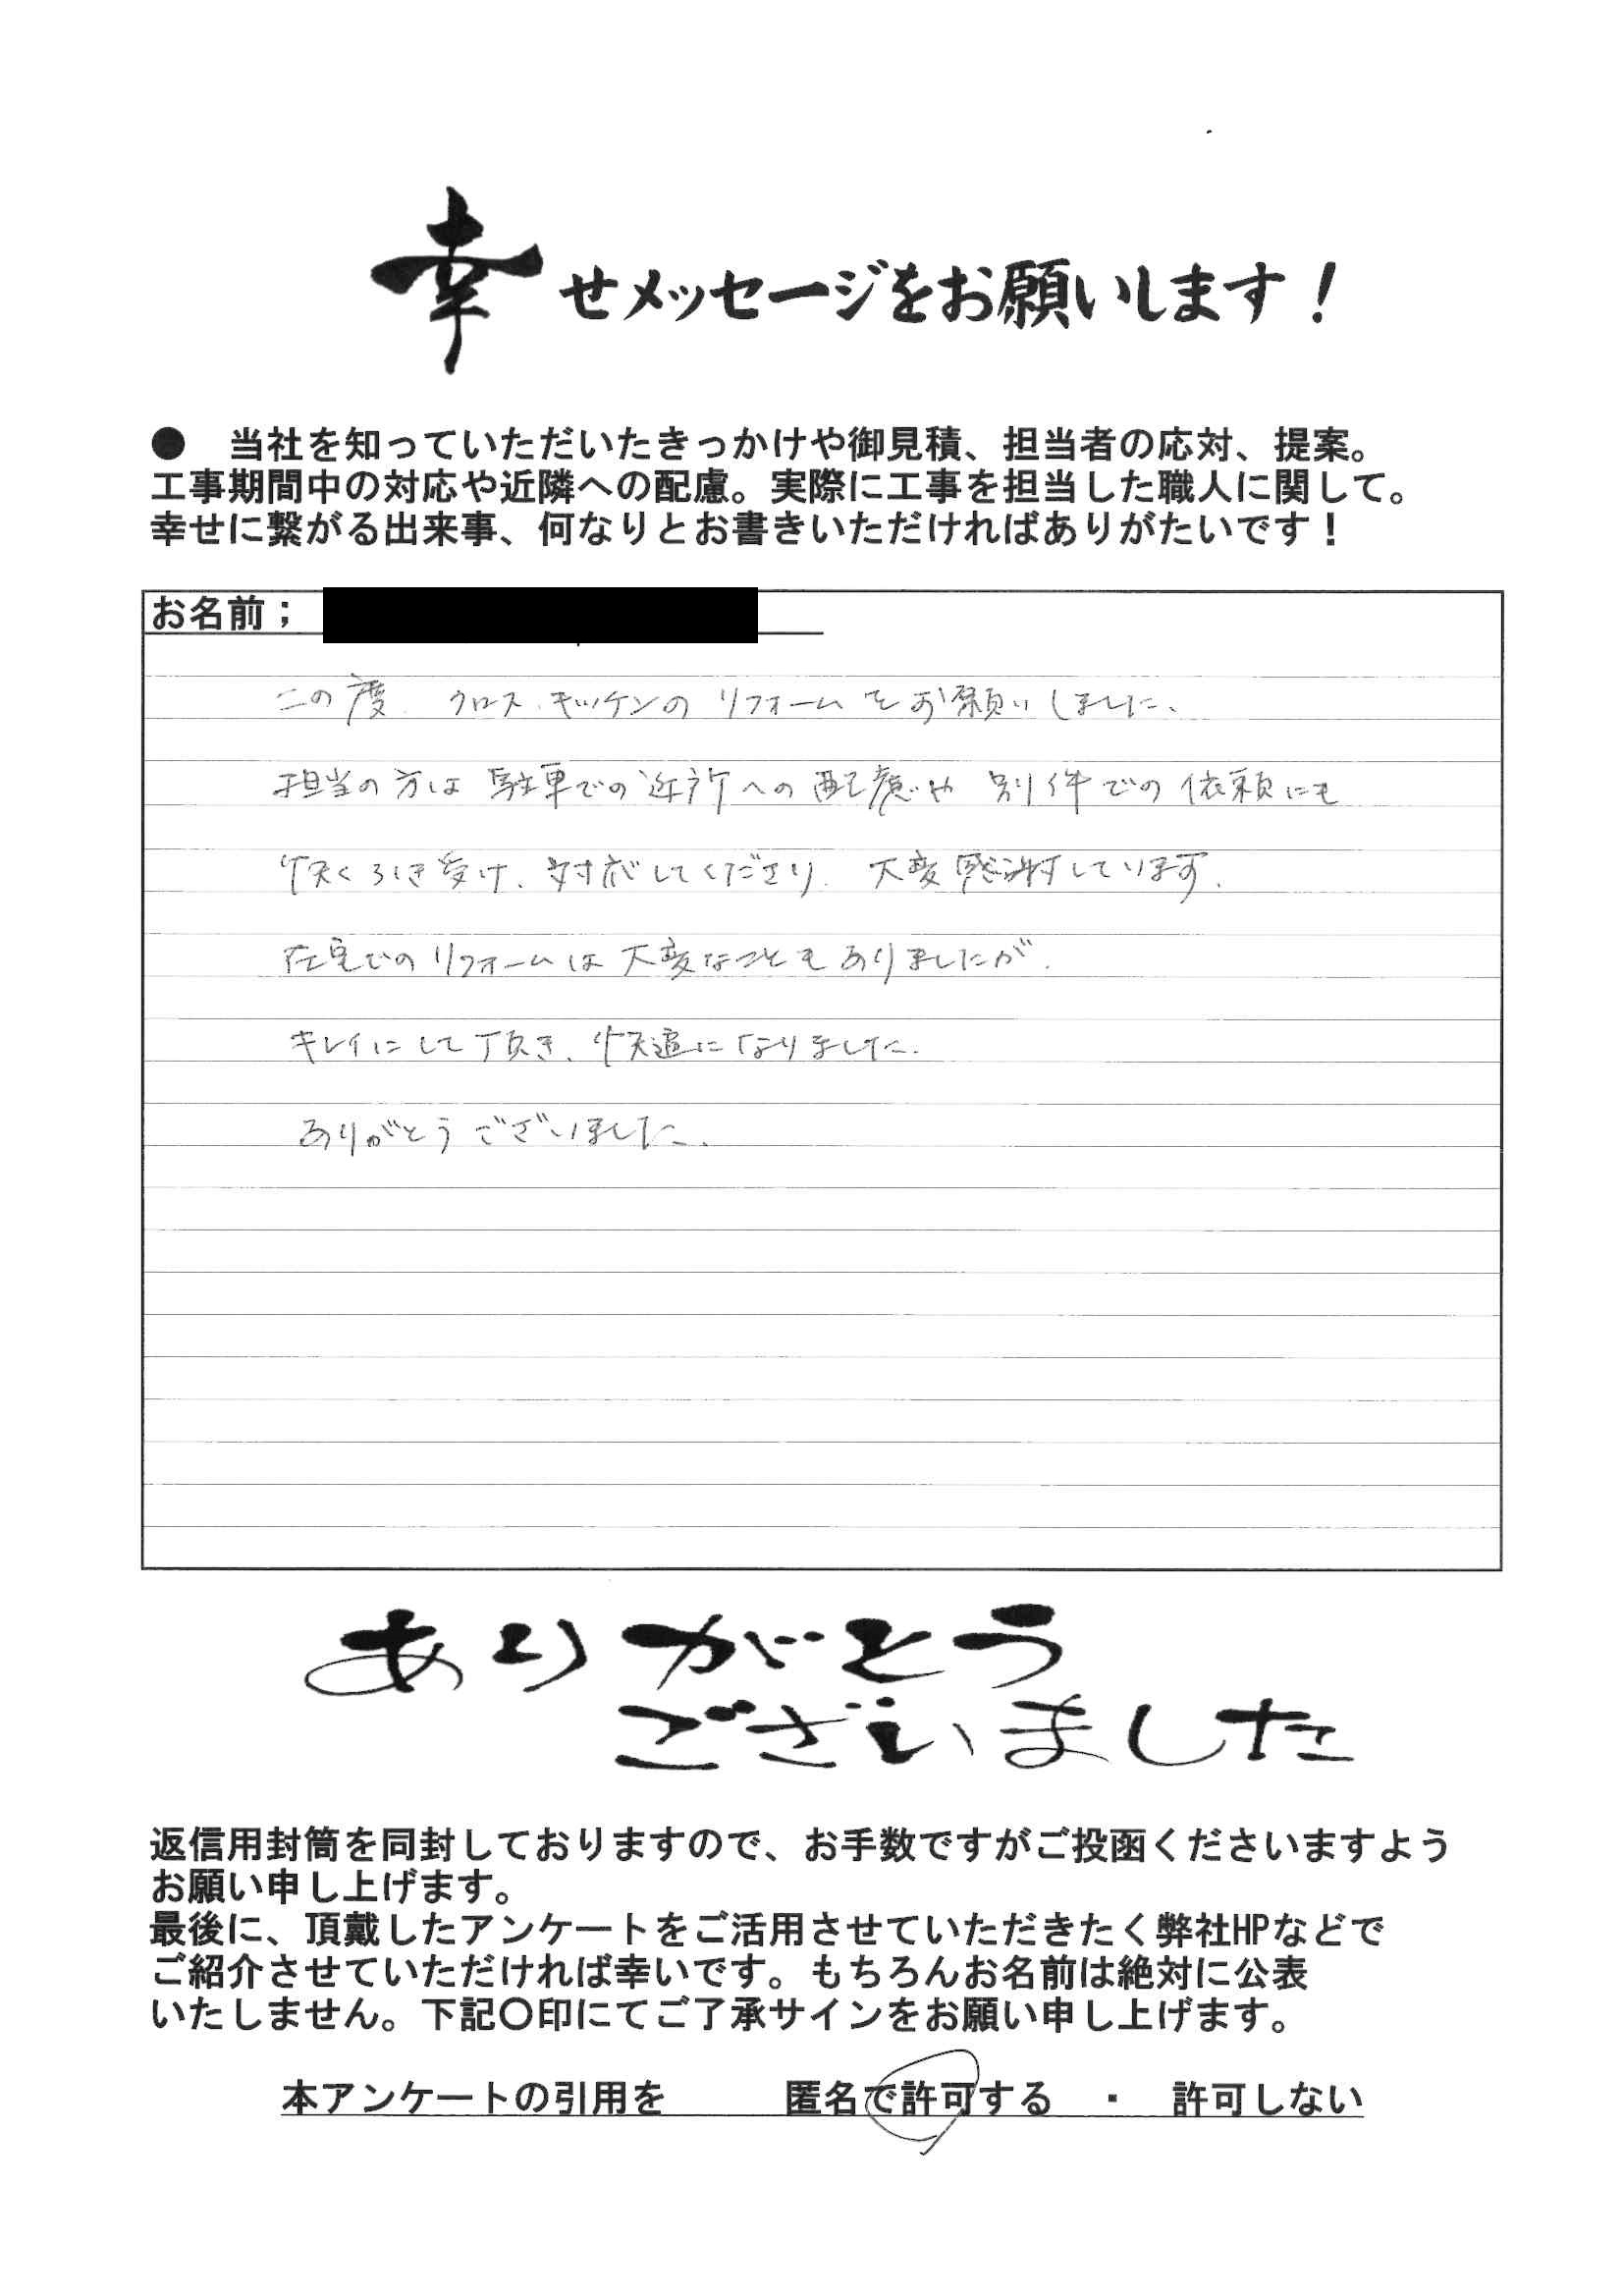 幸せメッセージをお願いします！
●　当社を知っていただいたきっかけや御見積、担当者の応対、提案。
工事期間中の対応や近隣への配慮。実際に工事を担当した職人に関して。
幸せに繋がる出来事、何なりとお書きいただければありがたいです！
お名前；
この度、クロス、キッチンのリフォームをお願いしました、
担当の方は駐車での近所への配慮や別件での依頼にも
快く引き受け、対応してくださり、大変感謝しています。
在宅でのリフォームは大変なこともありましたが、
キレイにして頂き、快適になりました。
ありがとうございました、
ありがとう
ございました
返信用封筒を同封しておりますので、お手数ですがご投函くださいますよう
お願い申し上げます。
最後に、頂戴したアンケートをご活用させていただきたく弊社HPなどで
ご紹介させていただければ幸いです。もちろんお名前は絶対に公表
いたしません。下記〇印にてご了承サインをお願い申し上げます。
本アンケートの引用を　　　匿名で許可する　・　許可しない